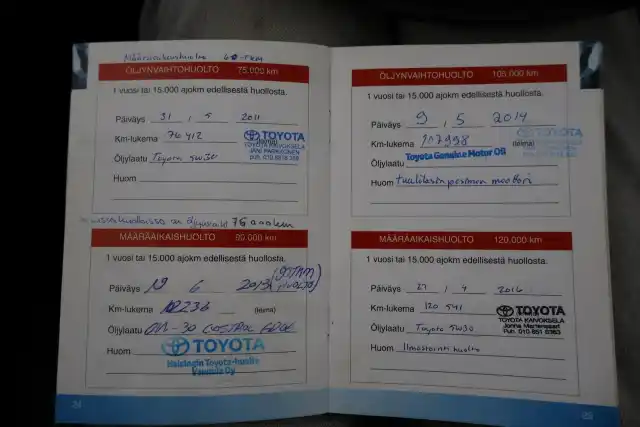 Määräaikaishuolto 60 TKM
ÖLJYNVAIHTOHUOLTO 75.000 km
1 vuosi tai 15.000 ajokm edellisestä huollosta.
Päiväys 31 / 5 2011
Km-lukema 76 412 (leima)
TOYOTA
TOYOTA KAIVOKSELA
JANI PARKKONEN
Öljylaatu Toyota 5W30
Huom
76
MÄÄRÄAIKAISHUOLTO 90.000 km
1 vuosi tai 15.000 ajokm edellisestä huollosta.
Päiväys 19 6 2013 (90TKM HUOLTO)
Km-lukema (leima)
Öljylaatu 0W-30 CASTROL EDGE
Huom
TOYOTA
Helsingin Toyota-huolto
Vannila Oy
24
ÖLJYNVAIHTOHUOLTO 105.000 km
1 vuosi tai 15.000 ajokm edellisestä huollosta.
Päiväys 9 / 5 2014
Km-lukema 107998 (leima)
TOYOTA
Öljylaatu Toyota Genuine Motor Oil
Huom tuulilasin pesimen moottori
MÄÄRÄAIKAISHUOLTO 120.000 km
1 vuosi tai 15.000 ajokm edellisestä huollosta.
Päiväys 27 / 4 2016
Km-lukema 120 541
TOYOTA
TOYOTA KAIVOKSELA
Puh. 010 851 8383
Öljylaatu Toyota 5W30
Huom Ilmastointihuolto
25